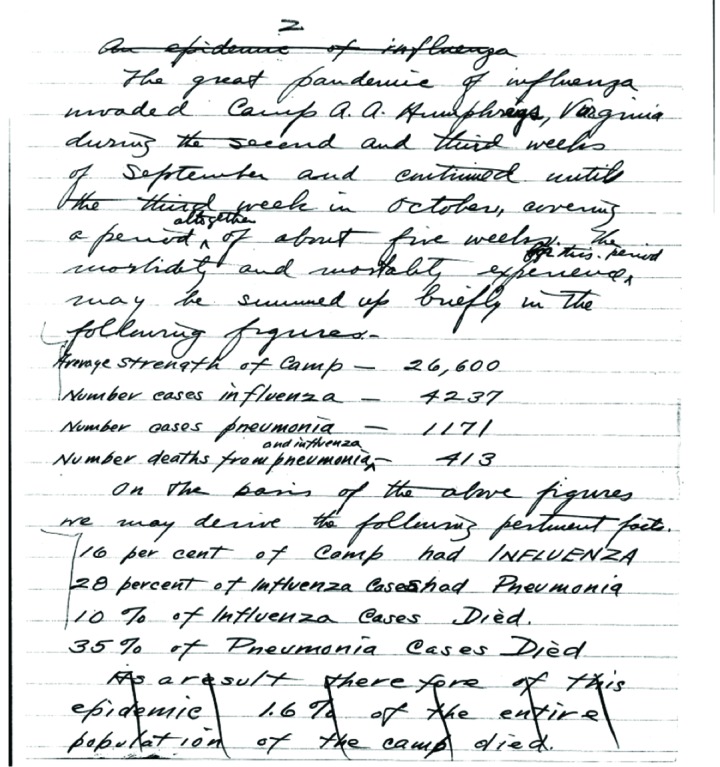 2
An epidemic of influenza
The great pandemic of influenza
invaded Camp A. A. Humphreys, Virginia
during the second and third weeks
of September and continued until
the third week in October, covering
altogether
a period ^ of about five weeks. The
for this period
morbidity and mortality experience ^
may be summed up briefly in the
following figures.-
Average strength of Camp — 26,600
Number cases influenza — 4237
Number cases pneumonia — 1171
and influenza
Number deaths from pneumonia ^ — 413
On the basis of the above figures
we may derive the following pertinent facts.
16 per cent of Camp had INFLUENZA
28 percent of Influenza Cases had Pneumonia
10 % of Influenza Cases Died.
35 % of Pneumonia Cases Died
As a result therefore of this
epidemic 1.6 % of the entire
population of the camp died.